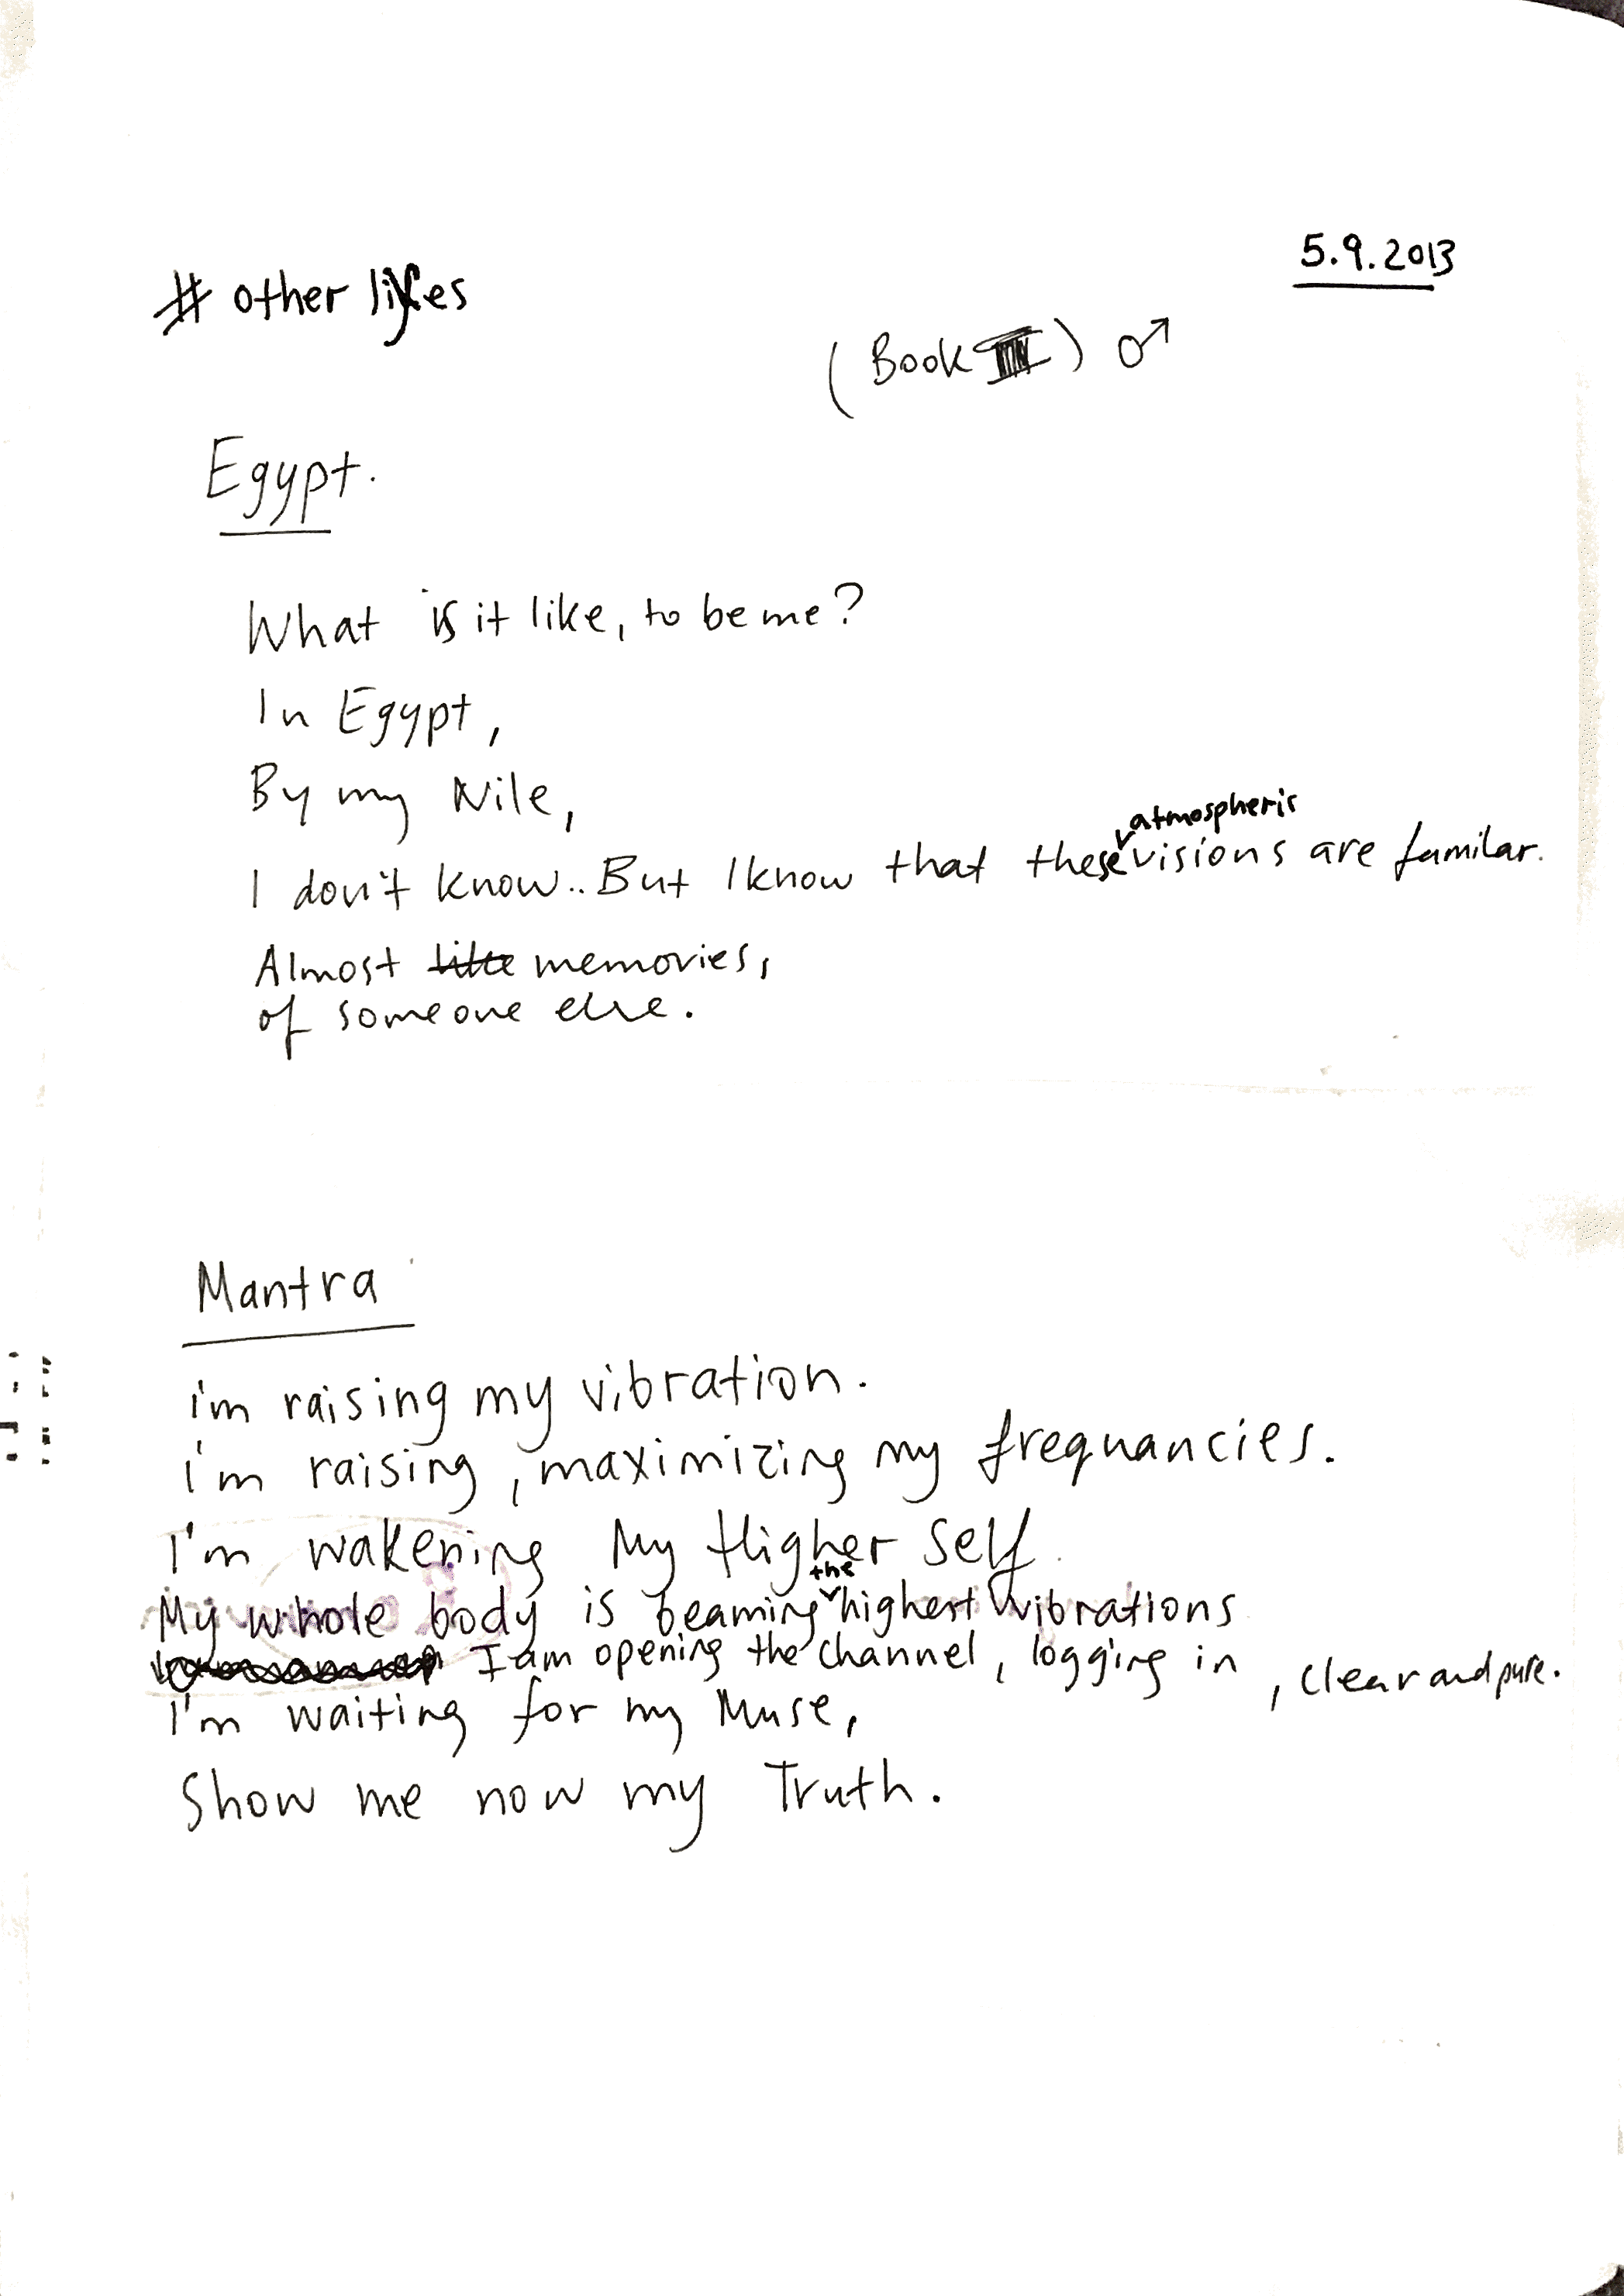 5.9.2013
# other lives
(Book III) ♂
Egypt.
What is it like, to be me?
In Egypt,
By my Nile,
I don't know.. But I know that these atmospheric visions are familar.
Almost like memories,
of someone else.
Mantra
i'm raising my vibration.
I'm raising, maximizing my frequancies.
I'm wakening My Higher Self.
My whole body is beaming the highest vibrations
I am opening the channel, logging in, clear and pure.
I'm waiting for my Muse,
Show me now my Truth.